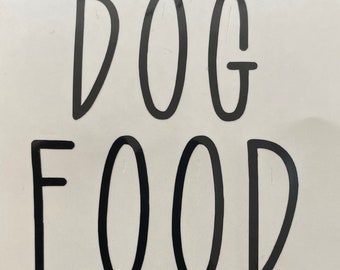 DOG
FOOD